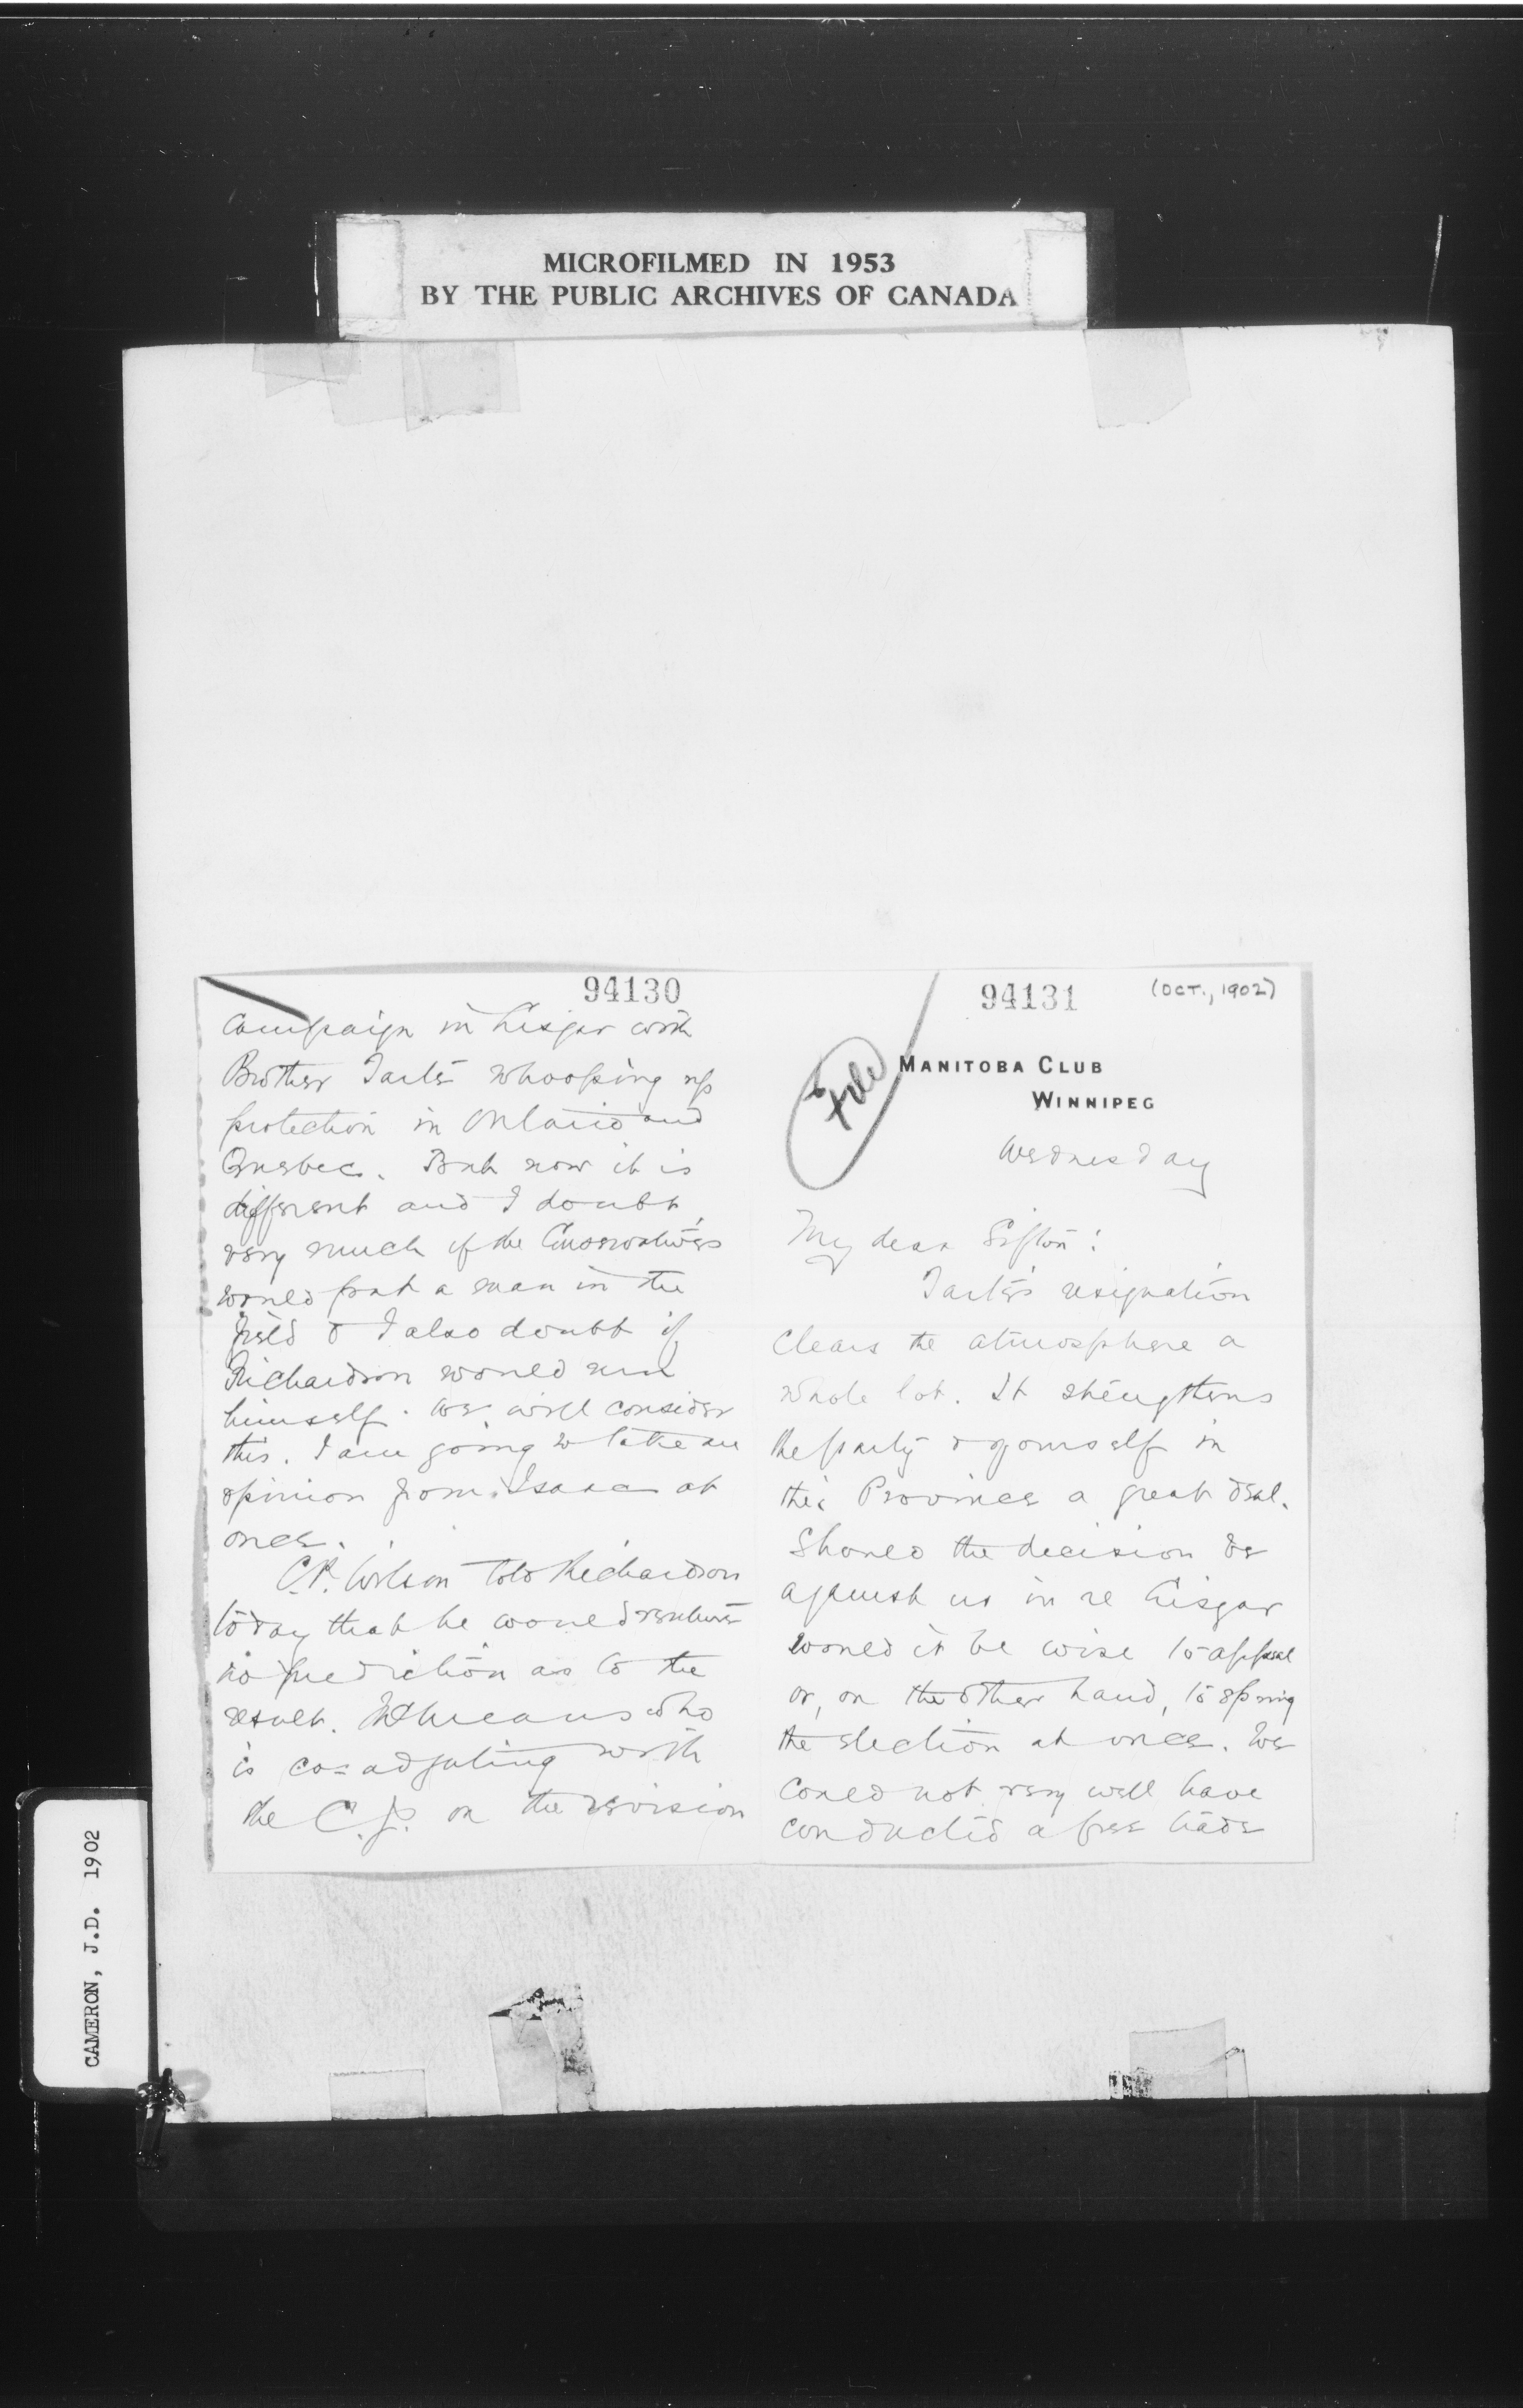 MICROFILMED IN 1953
BY THE PUBLIC ARCHIVES OF CANADA
94130
campaign in Lisgar with
Brother Tarte whooping up
protection in Ontario and
Quebec. But now it is
different and I doubt
very much if the Conservatives
would put a man in the
field & I also doubt if
Richardson would run
himself. We will consider
this. I am going to take an
opinion from Isaac at
once.
C.P. Wilson told Richardson
today that he would venture
no prediction as to the
result. who
is co-adjuting with
the C.J. on the revision
94131
(OCT., 1902)
File
MANITOBA CLUB
WINNIPEG
Wednesday
My dear Sifton:
Tarte's resignation
clears the atmosphere a
whole lot. It strengthens
the party & yourself in
this Province a great deal.
Should the decision be
against us in re Lisgar
would it be wise to appeal
or, on the other hand, to spring
the election at once. We
could not very well have
conducted a free trade
CAMERON, J.D. 1902